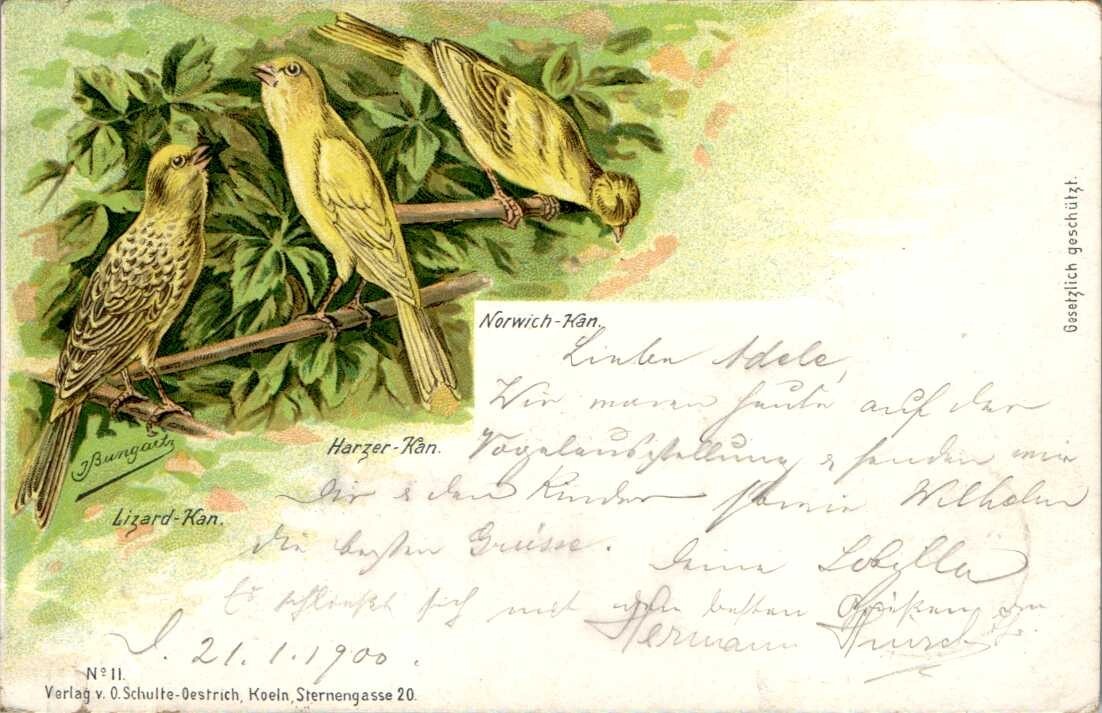 Norwich-Kan.
Harzer-Kan.
Lizard-Kan.
JBungartz
Gesetzlich geschützt.
Liebe Adele,
Wir waren heute auf der
Vogelausstellung & senden wir
Dir & den Kinder sowie Wilhelm
die besten Grüsse.
Deine Sobylla
Es schließt sich mit den besten Grüßen an
Hermann
D. 21.1.1900.
Nº 11.
Verlag v. O. Schulte-Oestrich, Koeln, Sternengasse 20.